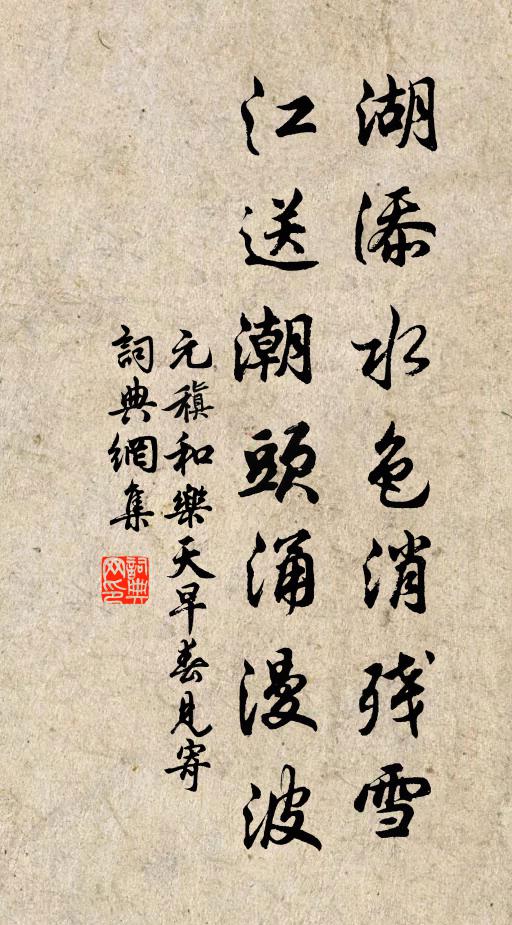 湖添水色消残雪
江送潮頭涌漫波
元稹和樂天早春見寄
詞典網集
詞典網印